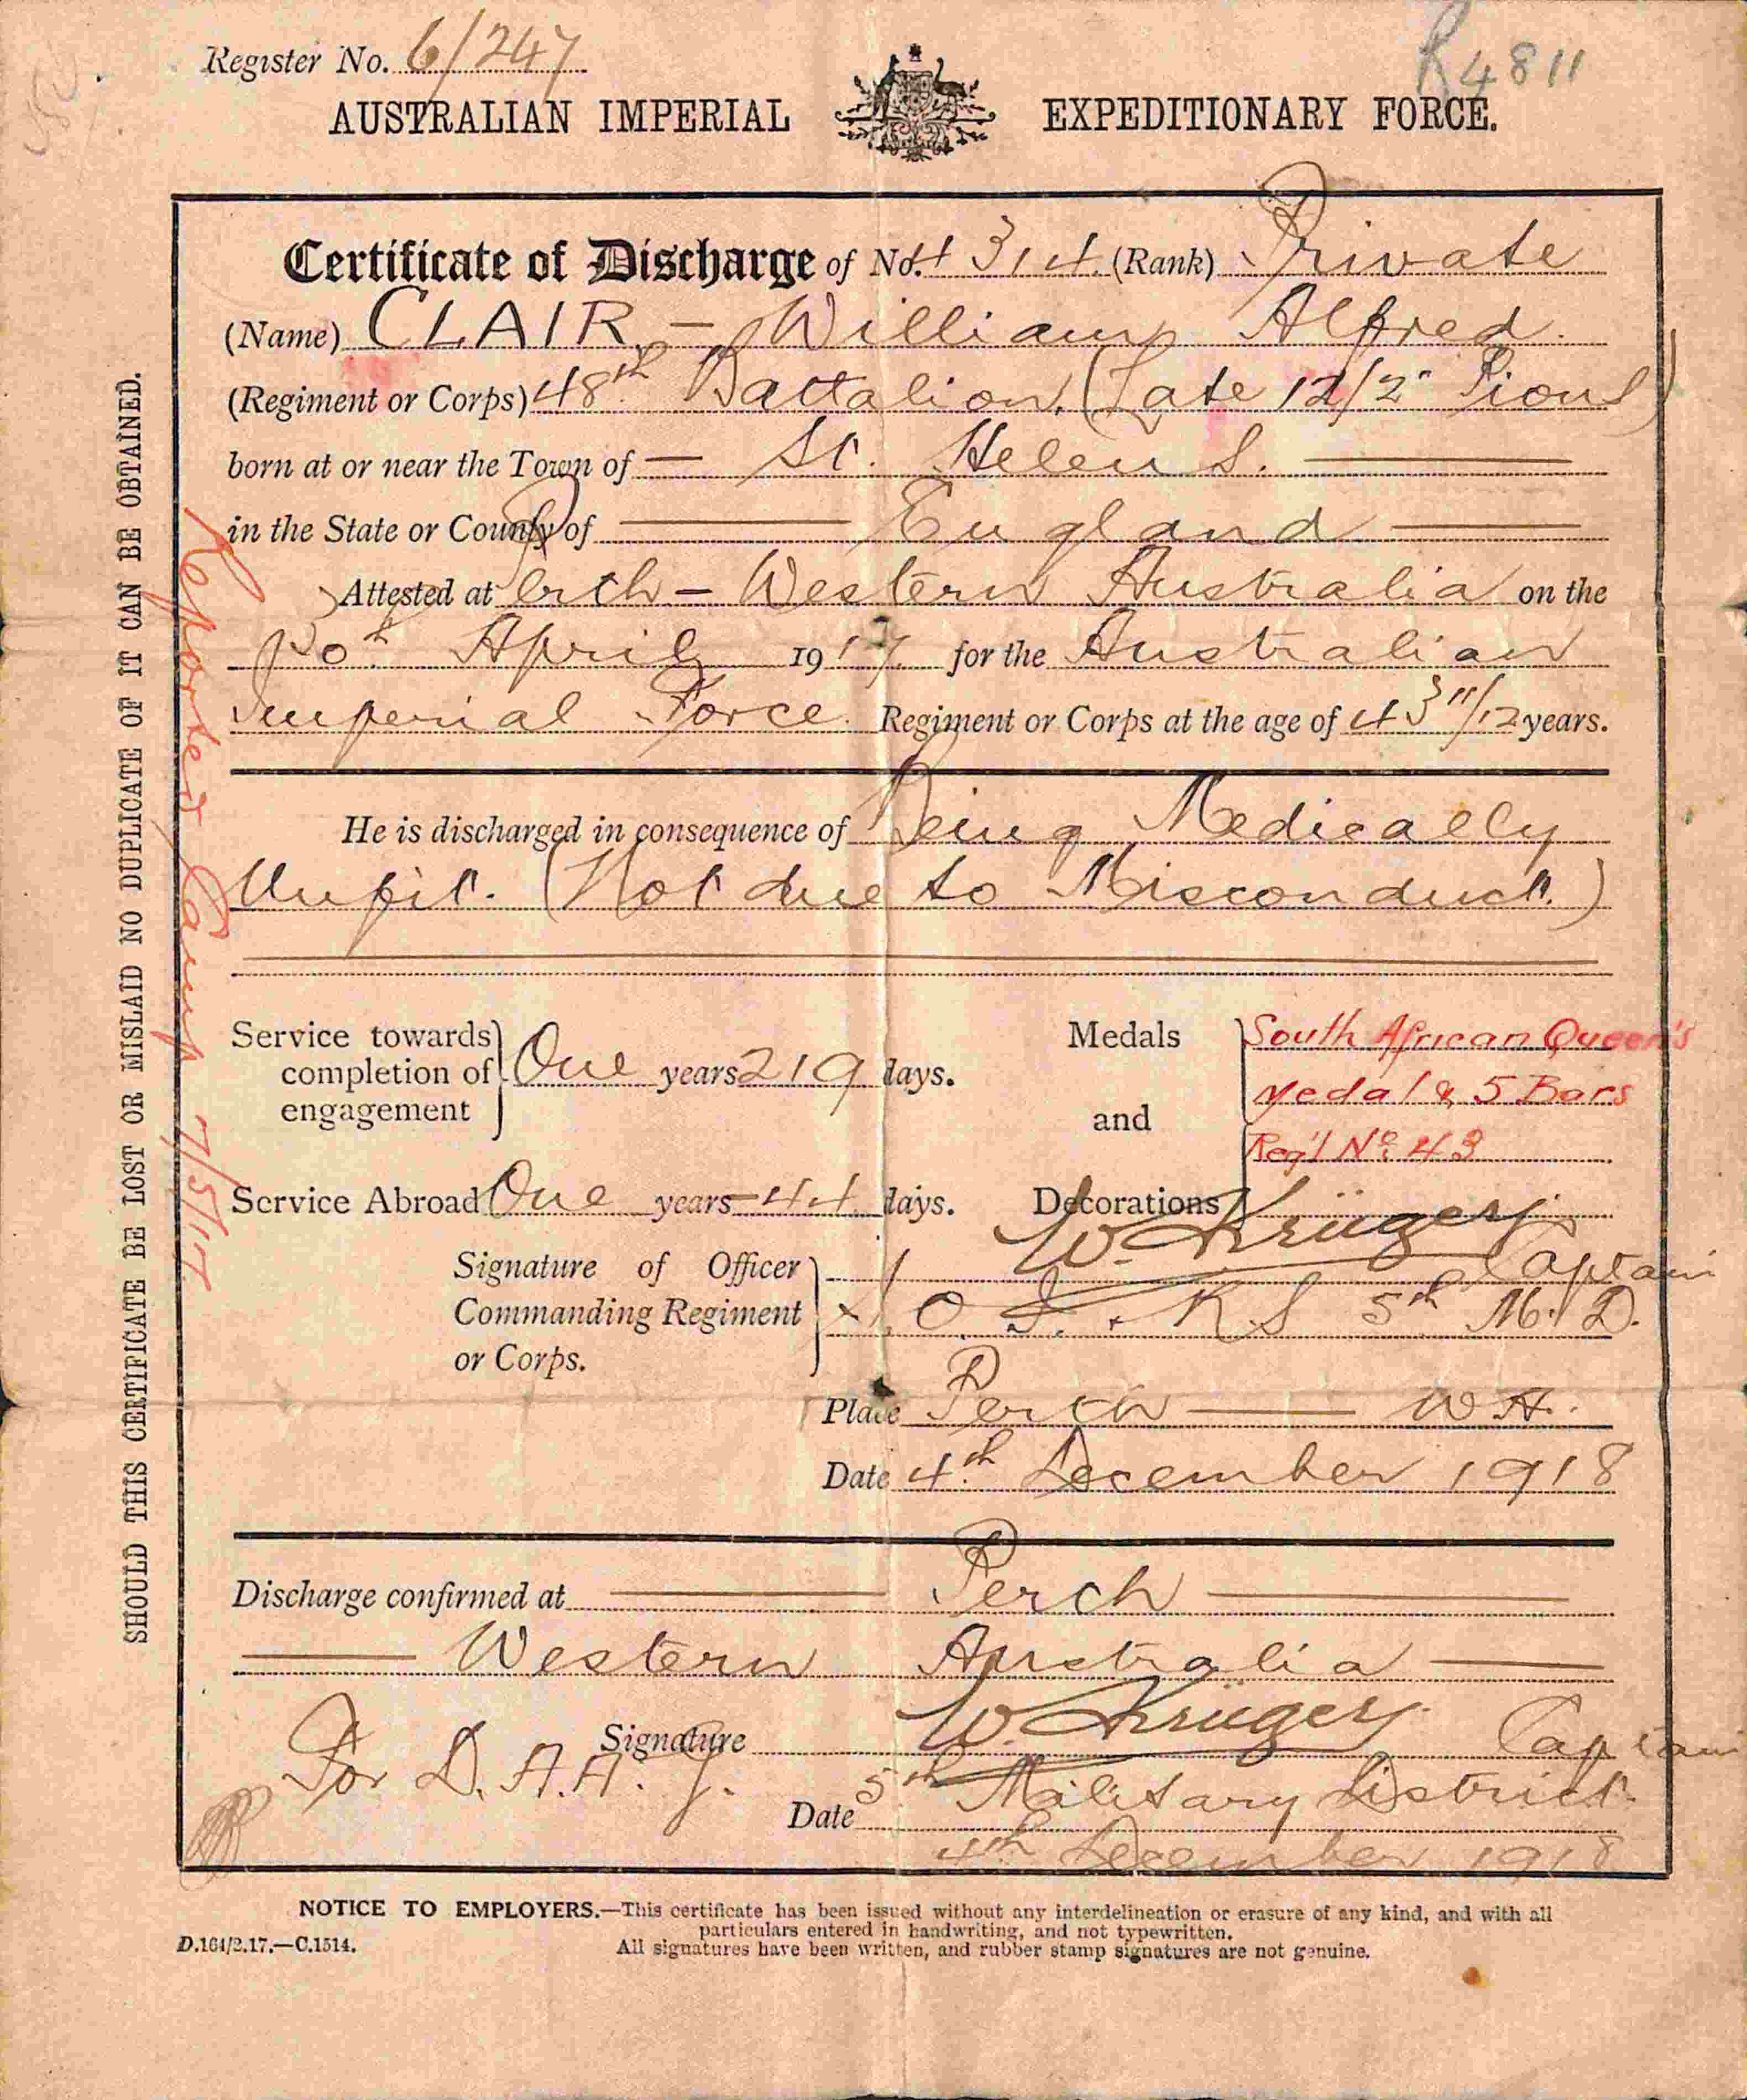 Register No. 6/247
R4811
AUSTRALIAN IMPERIAL EXPEDITIONARY FORCE.
Certificate of Discharge of No. 4314. (Rank) Private
(Name) CLAIR. – William Alfred.
(Regiment or Corps) 48th Battalion. (Late 12/2" Pions)
born at or near the Town of — St. Helens. —
in the State or County of — England —
Attested at Perth – Western Australia on the
30th April 1917. for the Australian
Imperial Force. Regiment or Corps at the age of 43 11/12 years.
He is discharged in consequence of Being Medically
Unfit. (Not due to Misconduct.)
Service towards completion of engagement One years 219 days.
Medals and Decorations
South African Queen's
Medal & 5 Bars
Reg'l No. 43
Service Abroad One years 44 days.
Signature of Officer Commanding Regiment or Corps.
W. Krüger Captain
O. I. . R S 5th M. D.
Place Perth — W A.
Date 4th December 1918
Discharge confirmed at — Perth —
— Western Australia —
Signature W. Krüger Captain
For D. A. A. G. 5th Military District.
Date 4th December 1918
SHOULD THIS CERTIFICATE BE LOST OR MISLAID NO DUPLICATE OF IT CAN BE OBTAINED.
Reported Camp 7/5/17
NOTICE TO EMPLOYERS.—This certificate has been issued without any interdelineation or erasure of any kind, and with all
particulars entered in handwriting, and not typewritten.
All signatures have been written, and rubber stamp signatures are not genuine.
D.164/2.17.—C.1514.